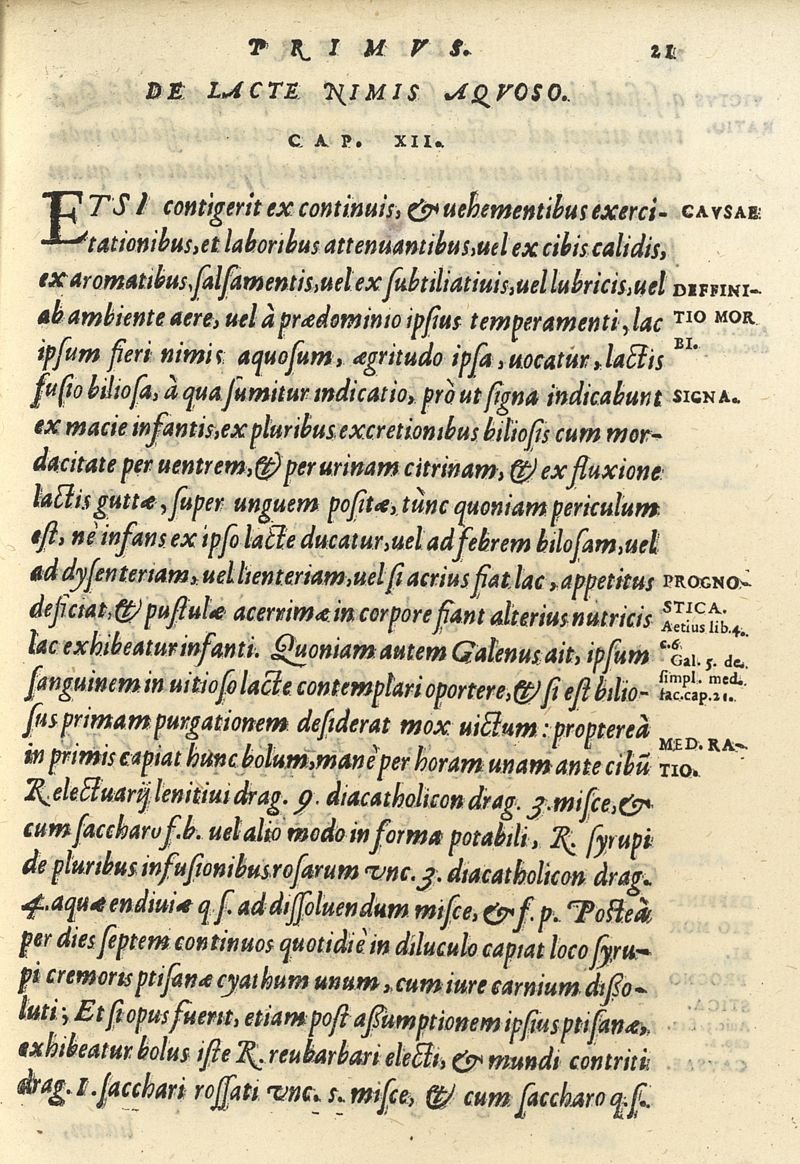 PRIMVS. 21
DE LACTE NIMIS AQVOSO.
CAP. XII.
ETSI contigerit ex continuis, & uehementibus exerci-
CAVSAE
tationibus, et laboribus attenuantibus, uel ex cibis calidis,
ex aromatibus, salsamentis, uel ex subtiliatiuis, uel lubricis, uel
DEFFINI-
ab ambiente aere, uel à prædominio ipsius temperamenti, lac
TIO MOR
ipsum fieri nimis aquosum, ægritudo ipsa, uocatur, lactis
BI.
fusio biliosa, à qua sumitur indicatio, prò ut signa indicabunt
SIGNA.
ex macie infantis, ex pluribus excretionibus biliosis cum mor-
dacitate per uentrem, & per urinam citrinam, & ex fluxione
lactis guttæ, super unguem positæ, tùnc quoniam periculum
est, nè infans ex ipso lacte ducatur, uel ad febrem bilosam, uel
ad dysenteriam, uel lienteriam, uel si acrius fiat lac, appetitus
PROGNO-
deficiat, & pustulæ acerrimæ in corpore fiant alterius nutricis
STICA.
Aetius lib. 4.
lac exhibeatur infanti. Quoniam autem Galenus ait, ipsum
c. 6.
Gal. 5. de
sanguinem in uitioso lacte contemplari oportere, & si est bilio-
simpl. med.
fac. cap. 21.
sus primam purgationem desiderat mox uictum: proptereà
MED. RA-
in primis capiat hunc bolum, manè per horam unam ante cibũ
TIO.
R electuarij lenitiui drag. 9. diacatholicon drag. 3. misce, &
cum saccharo f. b. uel alio modo in forma potabili, R. syrupi
de pluribus infusionibus rosarum vnc. 3. diacatholicon drag.
4. aquæ endiuiæ q. s. ad dissoluendum misce, & f. p. Posteà
per dies septem continuos quotidiè in diluculo capiat loco syru-
pi cremoris ptisanæ cyathum unum, cum iure carnium disso-
luti; Et si opus fuerit, etiam post assumptionem ipsius ptisanæ,
exhibeatur bolus iste R. reubarbari electi, & mundi contriti
drag. 1. sacchari rossati vnc. s. misce, & cum saccharo q. s.